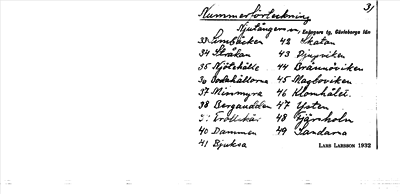 31
Nummerförteckning
Njutångers sn, Enångers tg, Gävleborgs län
33 Limbäcken 42 Skatan
34 Stråkan 43 Djupviken
35 Njötehälle 44 Brännöviken
36 45 Magloviken
37 Minmyra 46 Klomhålet
38 Bergaudden 47 Ysten
39 Trollskär 48 Fjärsholm
40 Dammen 49 Sandarna
41 Bjuksa
LARS LARSSON 1932